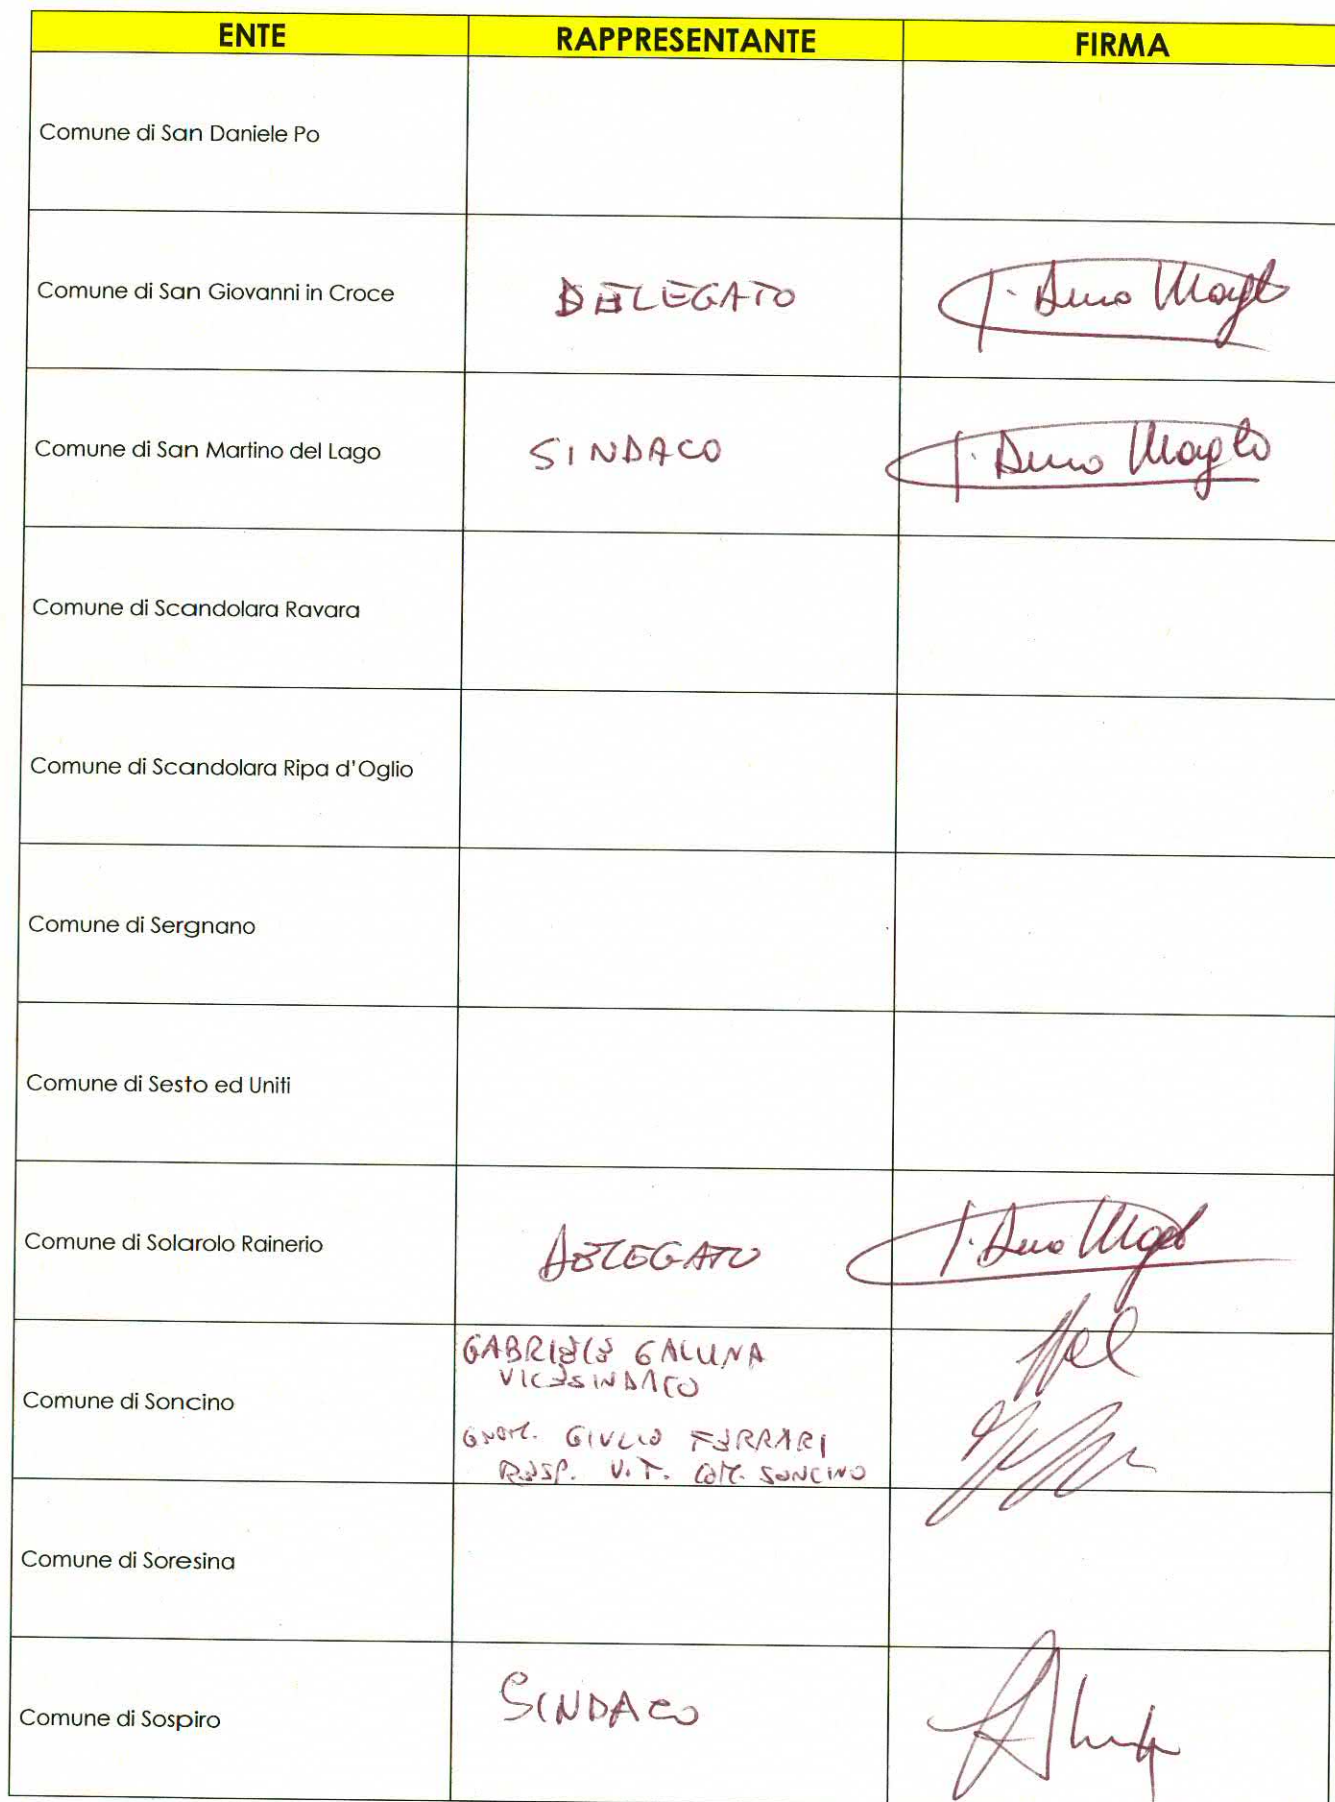 ENTE RAPPRESENTANTE FIRMA
Comune di San Daniele Po
Comune di San Giovanni in Croce DELEGATO
Comune di San Martino del Lago SINDACO
Comune di Scandolara Ravara
Comune di Scandolara Ripa d'Oglio
Comune di Sergnano
Comune di Sesto ed Uniti
Comune di Solarolo Rainerio DELEGATO
GABRIELE GALLINA
VICESINDACO
Comune di Soncino
GEOM. GIULIO FERRARI
RESP. U.T. COM. SONCINO
Comune di Soresina
Comune di Sospiro SINDACO